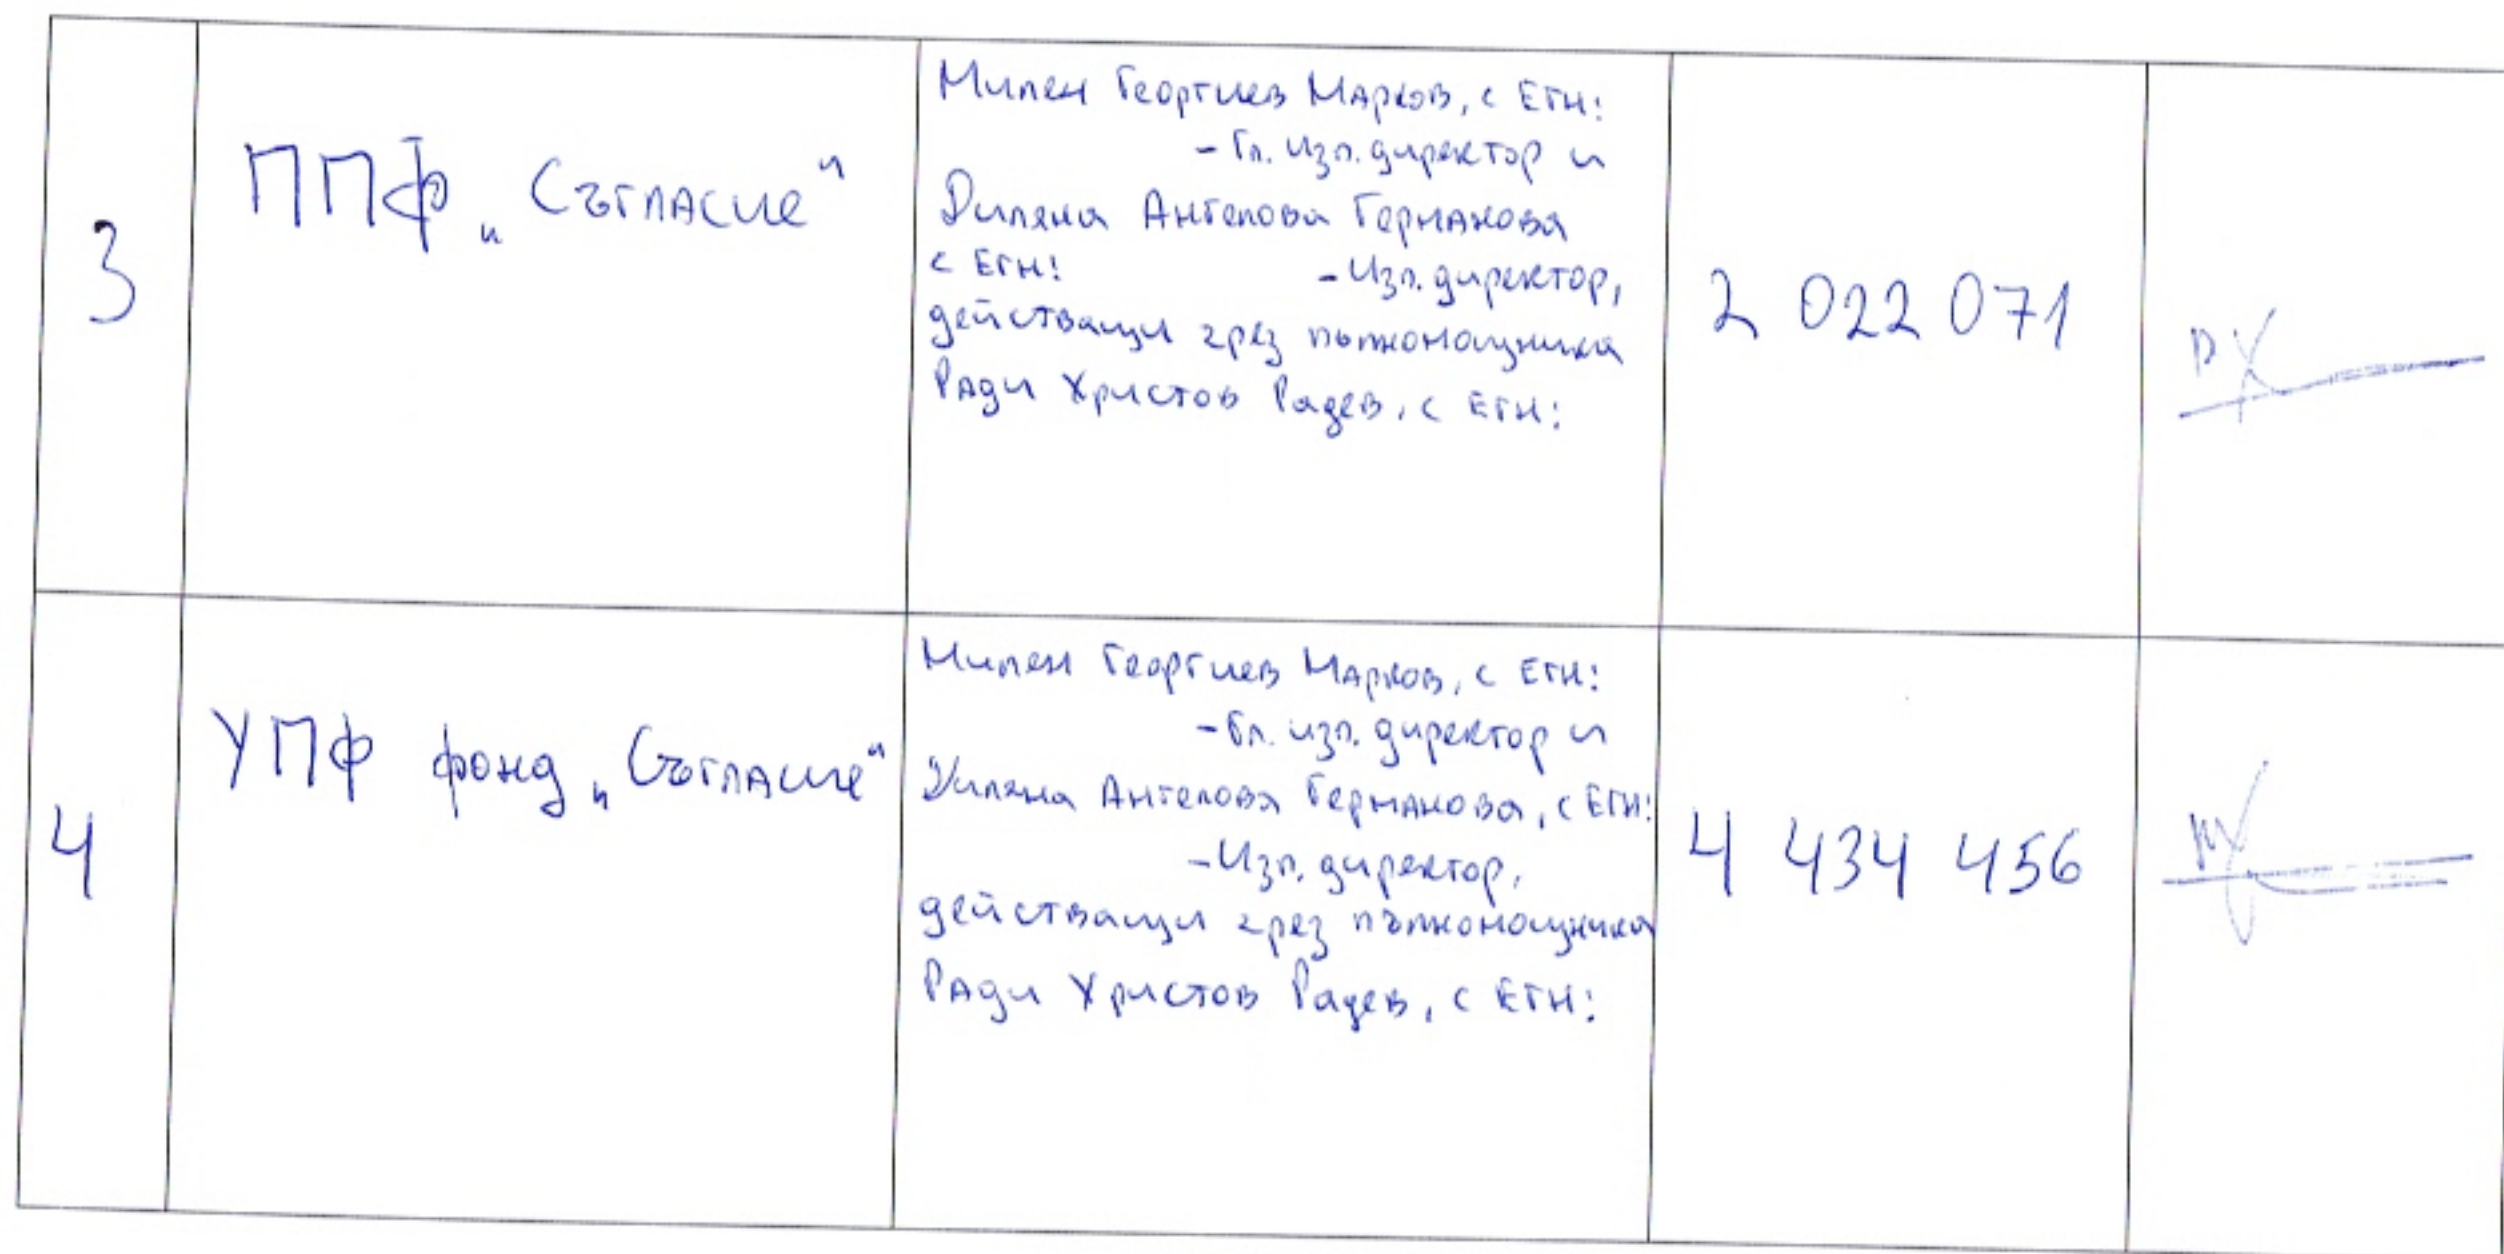 3
ППФ „Съгласие"
Милен Георгиев Марков, с ЕГН:
- Гл. изп. директор и
Диляна Ангелова Германова
с ЕГН: - Изп. директор,
действащи чрез пълномощника
Ради Христов Радев, с ЕГН:
2 022 071
4
УПФ фонд „Съгласие"
Милен Георгиев Марков, с ЕГН:
- Гл. изп. директор и
Диляна Ангелова Германова, с ЕГН:
- Изп. директор,
действащи чрез пълномощника
Ради Христов Радев, с ЕГН:
4 434 456